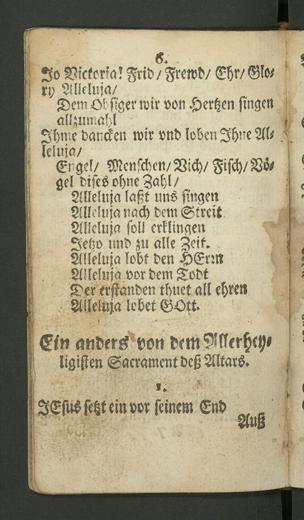 6.
Jo Victoria! Frid/ Frewd/ Ehr/ Glo-
ry Alleluja/
Dem Obsiger wir von Hertzen singen
allzumahl
Ihme dancken wir vnd loben Ihne Al-
leluja/
Engel/ Menschen/ Vich/ Fisch/ Vö-
gel dises ohne Zahl/
Alleluja laßt uns singen
Alleluja nach dem Streit
Alleluja soll erklingen
Jetzo und zu alle Zeit.
Alleluja lobt den HErrn
Alleluja vor dem Todt
Der erstanden thuet all ehren
Alleluja lobet GOtt.
Ein anders von dem Allerhey-
ligisten Sacrament deß Altars.
1.
JEsus setzt ein vor seinem End
Auß